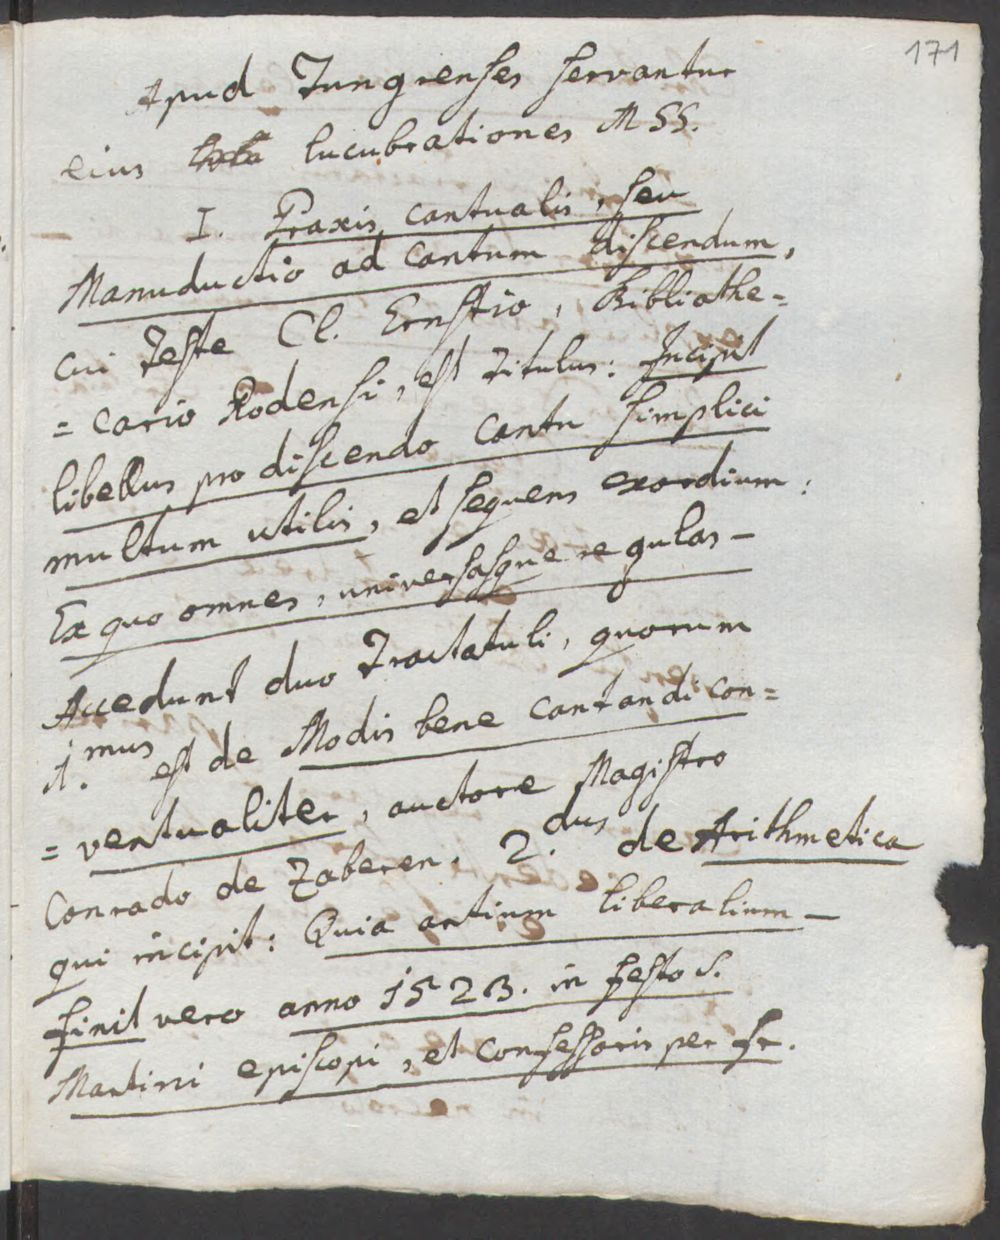 171
Apud Tungrenses servantur
eius lucubrationes MSS.
I. Praxis cantualis, seu
Manuductio ad Cantum discendum,
cui teste Cl. Ernstio, Bibliothe=
= cario Rodensi, est titulus: Incipit
libellus pro discendo cantu simplici
multum utilis, et sequens exordium:
Ex quo omnes, universasque regulas –
Accedunt duo Tractatuli, quorum
1.mus est de Modis bene cantandi con=
= ventualiter, auctore Magistro
Conrado de Zaberen. 2.dus de Arithmetica
qui incipit: Quia artium liberalium –
finit vero anno 1523. in festo S.
Martini episcopi, et confessoris per fr.